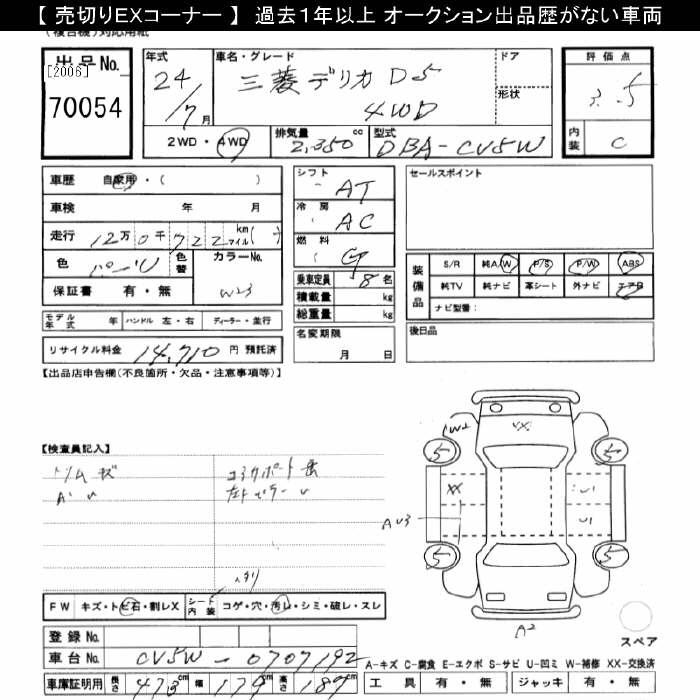 【 売切りEXコーナー 】 過去1年以上 オークション出品歴がない車両
(複合機)対応用紙
出品No.
[2006]
70054
年式
24/7月
車名・グレード
三菱デリカD5
4WD
ドア
形状
評価点
3.5
内装
C
2WD・4WD
排気量
2,350cc
型式
DBA-CV5W
車歴 自家用・( )
車検 年 月
走行 12万0千722 km マイル( )
色 パール 色替 カラーNo.
W23
保証書 有・無
モデル年式 年 ハンドル 左・右 ディーラー・並行
リサイクル料金 14,710 円 預託済
シフト
AT
冷房
AC
燃料
G
乗車定員 8名
積載量 kg
総重量 kg
名変期限
月 日
セールスポイント
装備品
S/R 純A/W P/S P/W ABS
純TV 純ナビ 革シート 外ナビ エアB
ナビ型番:
後日品
【出品店申告欄(不良箇所・欠品・注意事項等)】
【検査員記入】
トリムキズ
AU
W2
XX
5
5
XX
U1
AU3
U1
5
5
A2
スペア
FW キズ・トビ石・割レX シート内装 コゲ・穴・汚レ・シミ・破レ・スレ
登録No.
車台No. CV5W-0707192
車庫証明用 長さ 473cm 幅 179cm 高さ 187cm
A-キズ C-腐食 E-エクボ S-サビ U-凹ミ W-補修 XX-交換済
工具 有・無 ジャッキ 有・無